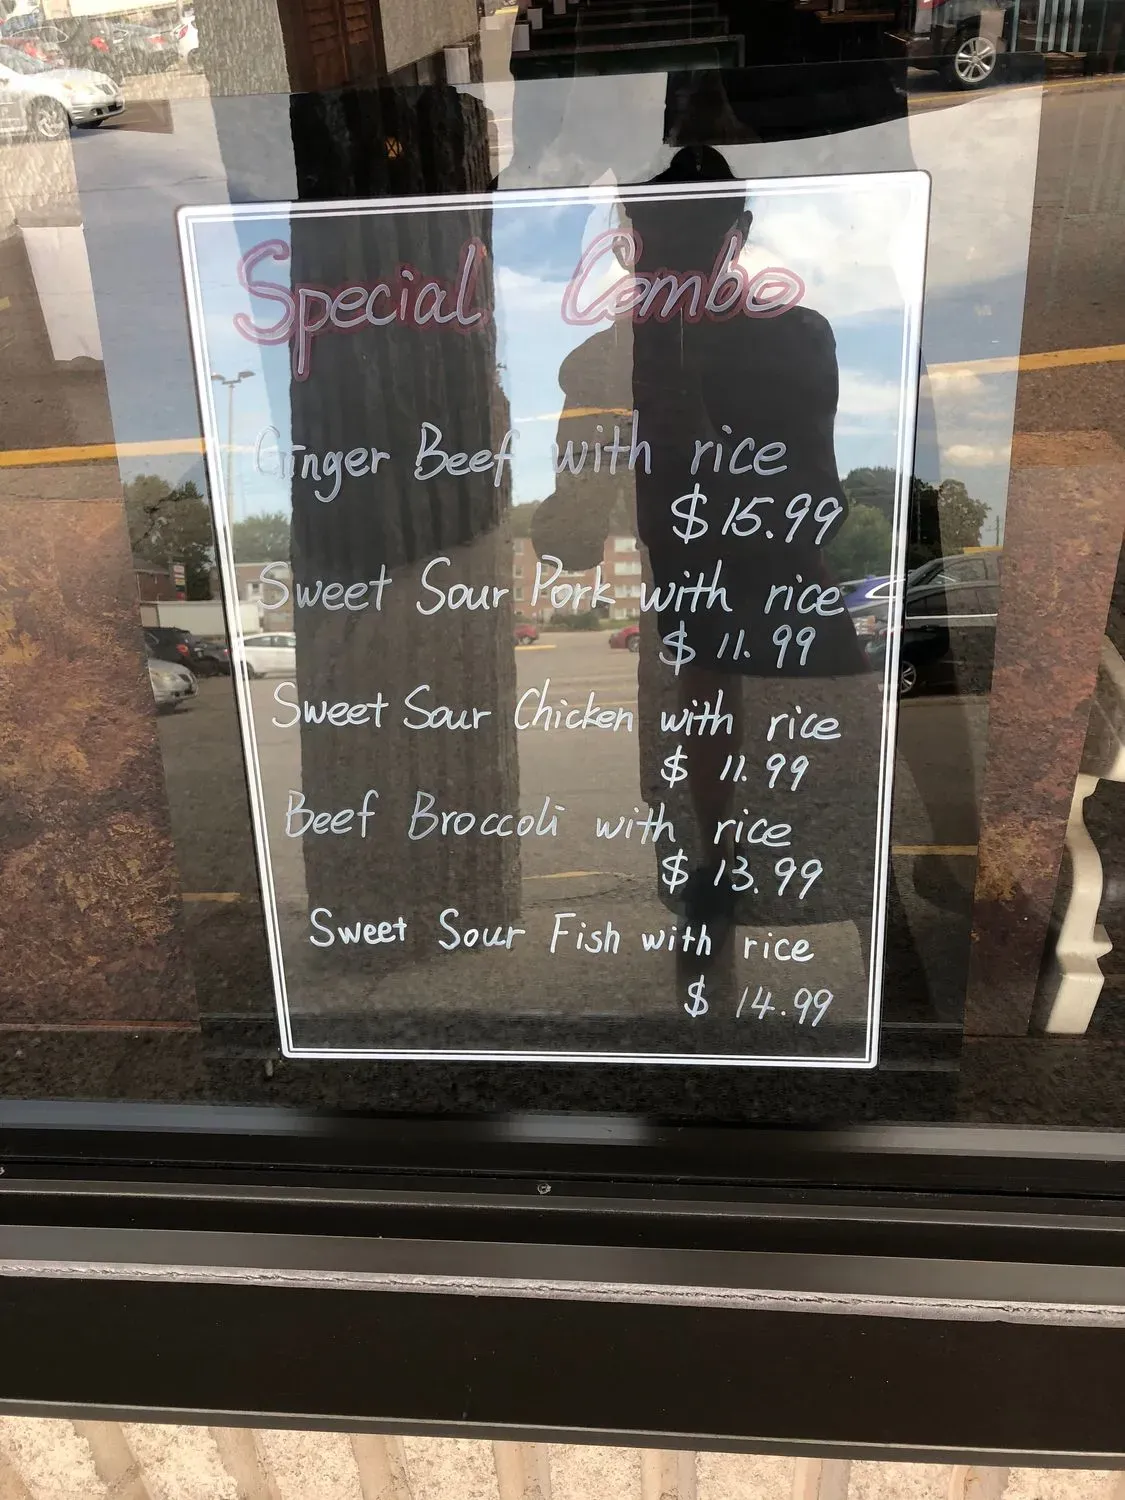 Special Combo
Ginger Beef with rice
$15.99
Sweet Sour Pork with rice
$11.99
Sweet Sour Chicken with rice
$11.99
Beef Broccoli with rice
$13.99
Sweet Sour Fish with rice
$14.99